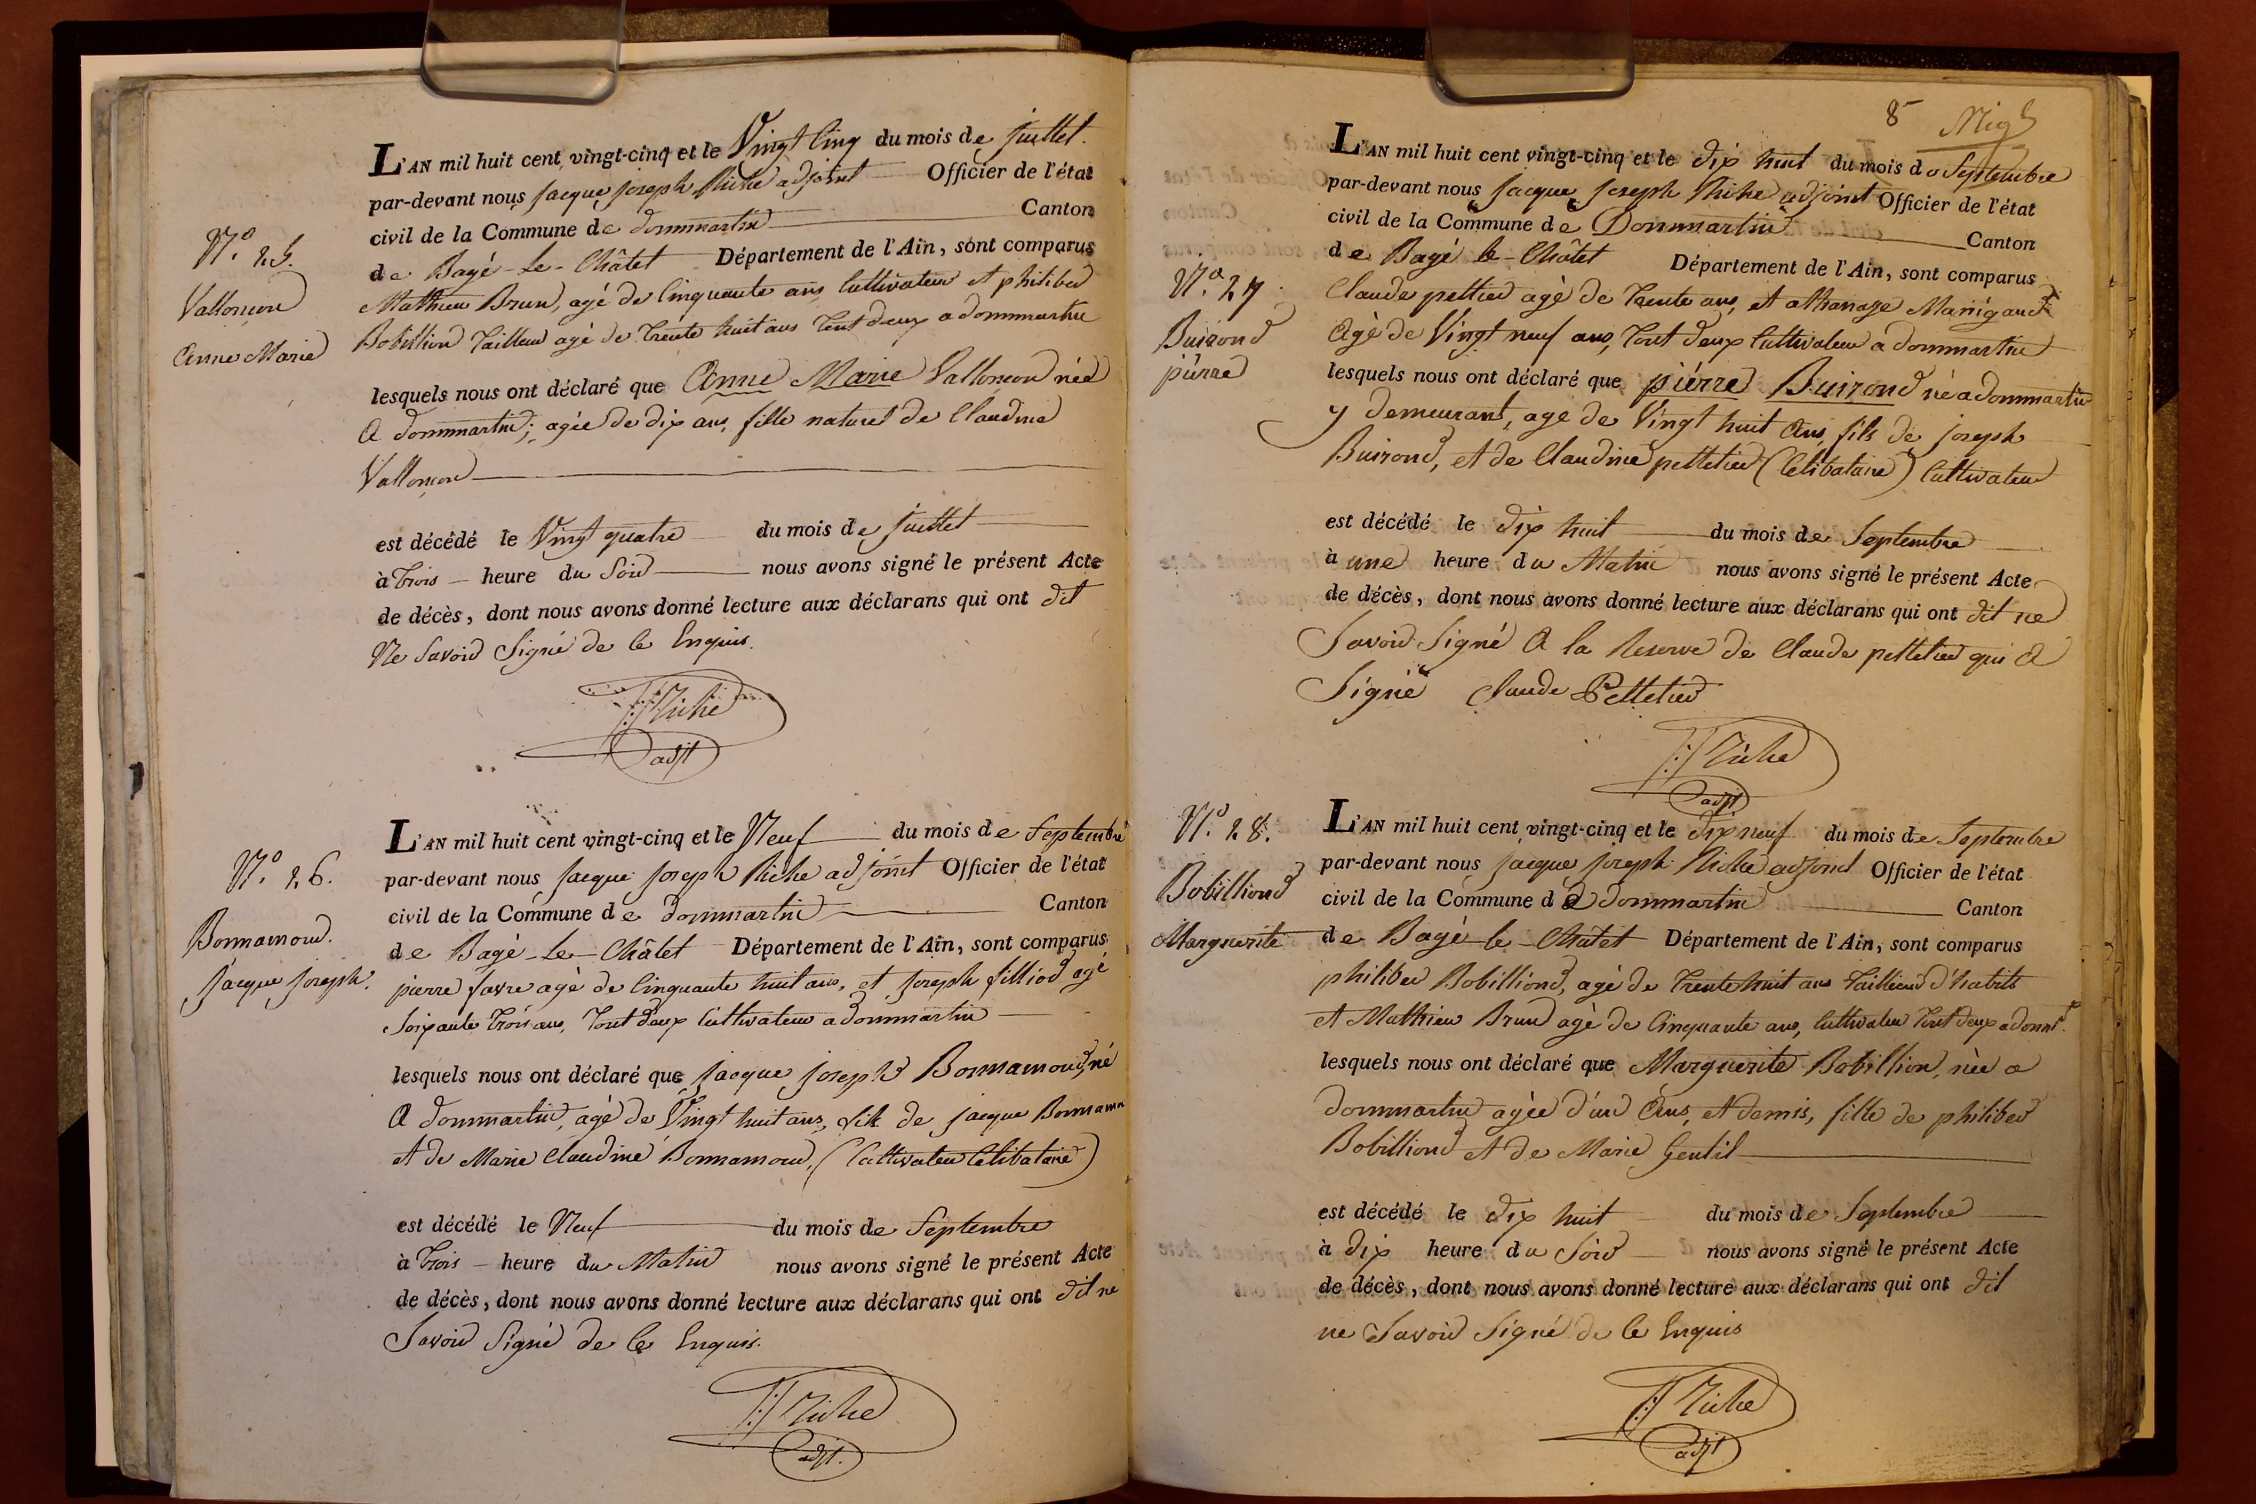 N.° 25.
Vallonçon
Anne Marie
L'AN mil huit cent vingt-cinq et le Vingt Cinq du mois de juillet
par-devant nous jacque joseph Riche adjoint Officier de l'état
civil de la Commune de dommartin Canton
de Bagé-Le-Châtel Département de l'Ain, sont comparus
Mathieu Brun, agé de Cinquante ans Cultivateur et philiber
Bobillion Tailleur agé de trente huit ans tout deux a dommartin
lesquels nous ont déclaré que Anne Marie Vallonçon née
A dommartin; agée de dix ans, fille naturel de Claudine
Vallonçon
est décédé le Vingt quatre du mois de juillet
à trois heure du Soir nous avons signé le présent Acte
de décès, dont nous avons donné lecture aux déclarans qui ont dit
Ne Savoir Signé de Ce Enquis.
JJ Riche
adjt
N.° 26.
Bonnamour.
jacque joseph.
L'AN mil huit cent vingt-cinq et le Neuf du mois de Septembre
par-devant nous jacque joseph Riche adjoint Officier de l'état
civil de la Commune de dommartin Canton
de Bagé-Le-Châtel Département de l'Ain, sont comparus
pierre favre agé de Cinquante huit ans, et joseph filliod agé
Soixante trois ans, tout deux Cultivateur a dommartin
lesquels nous ont déclaré que jacque joseph Bonnamour, né
A dommartin, agé de Vingt huit ans, fils de jacque Bonnamour
et de Marie Claudine Bonnamour, (Cultivateur Celibataire)
est décédé le Neuf du mois de Septembre
à trois heure du Matin nous avons signé le présent Acte
de décès, dont nous avons donné lecture aux déclarans qui ont dit ne
Savoir Signé de Ce Enquis.
JJ Riche
adjt.
8
N.° 27.
Buirond
pierre
L'AN mil huit cent vingt-cinq et le dix huit du mois de Septembre
par-devant nous jacque joseph Riche adjoint Officier de l'état
civil de la Commune de Dommartin Canton
de Bagé le-Châtel Département de l'Ain, sont comparus
Claude peltier agé de trente ans, et athanase Manigand
Agé de Vingt neuf ans, tout deux Cultivateur a dommartin
lesquels nous ont déclaré que pierre Buirond né a dommartin
y demeurant, age de Vingt huit Ans fils de joseph
Buirond, et de Claudine pelletier (Celibataire) Cultivateur
est décédé le dix huit du mois de Septembre
à une heure du Matin nous avons signé le présent Acte
de décès, dont nous avons donné lecture aux déclarans qui ont dit ne
Savoir Signé A la Reserve de Claude pelletier qui A
Signé Claude Pelletier
JJ Riche
adjt
N.° 28.
Bobilliond
Marguerite
L'AN mil huit cent vingt-cinq et le dix neuf du mois de Septembre
par-devant nous jacque joseph Riche adjoint Officier de l'état
civil de la Commune de dommartin Canton
de Bagé le-Châtel Département de l'Ain, sont comparus
philiber Bobilliond, agé de trente huit ans tailleur d'habits
et Mathieu Brun agé de Cinquante ans, Cultivateur tout deux a domm.t
lesquels nous ont déclaré que Marguerite Bobillion, née a
dommartin agée d'un Ans, et demis, fille de philiber
Bobilliond et de Marie Gentil
est décédé le dix huit du mois de Septembre
à dix heure du Soir nous avons signé le présent Acte
de décès, dont nous avons donné lecture aux déclarans qui ont dit
ne Savoir Signé de Ce Enquis
JJ Riche
adjt